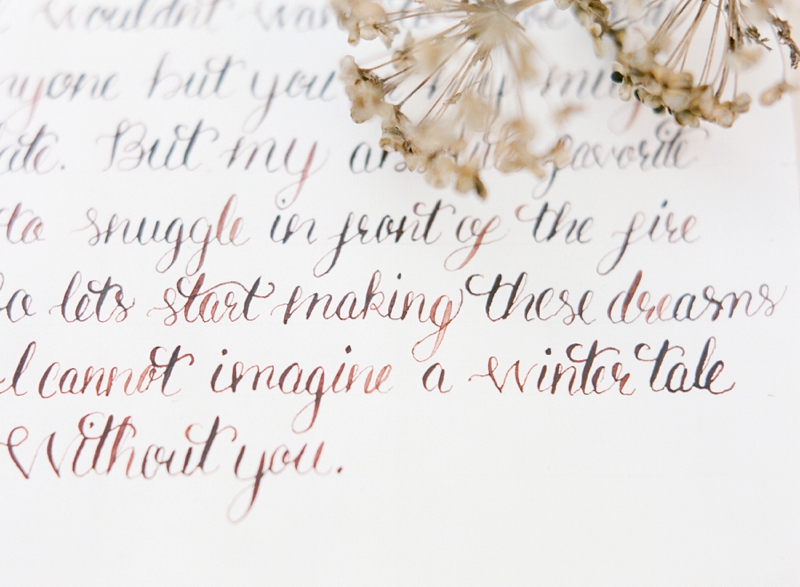 wouldn't wan
nyone but you my mu
ate. But my favorite
to snuggle in front of the fire
So lets start making these dreams
I cannot imagine a winter tale
Without you.